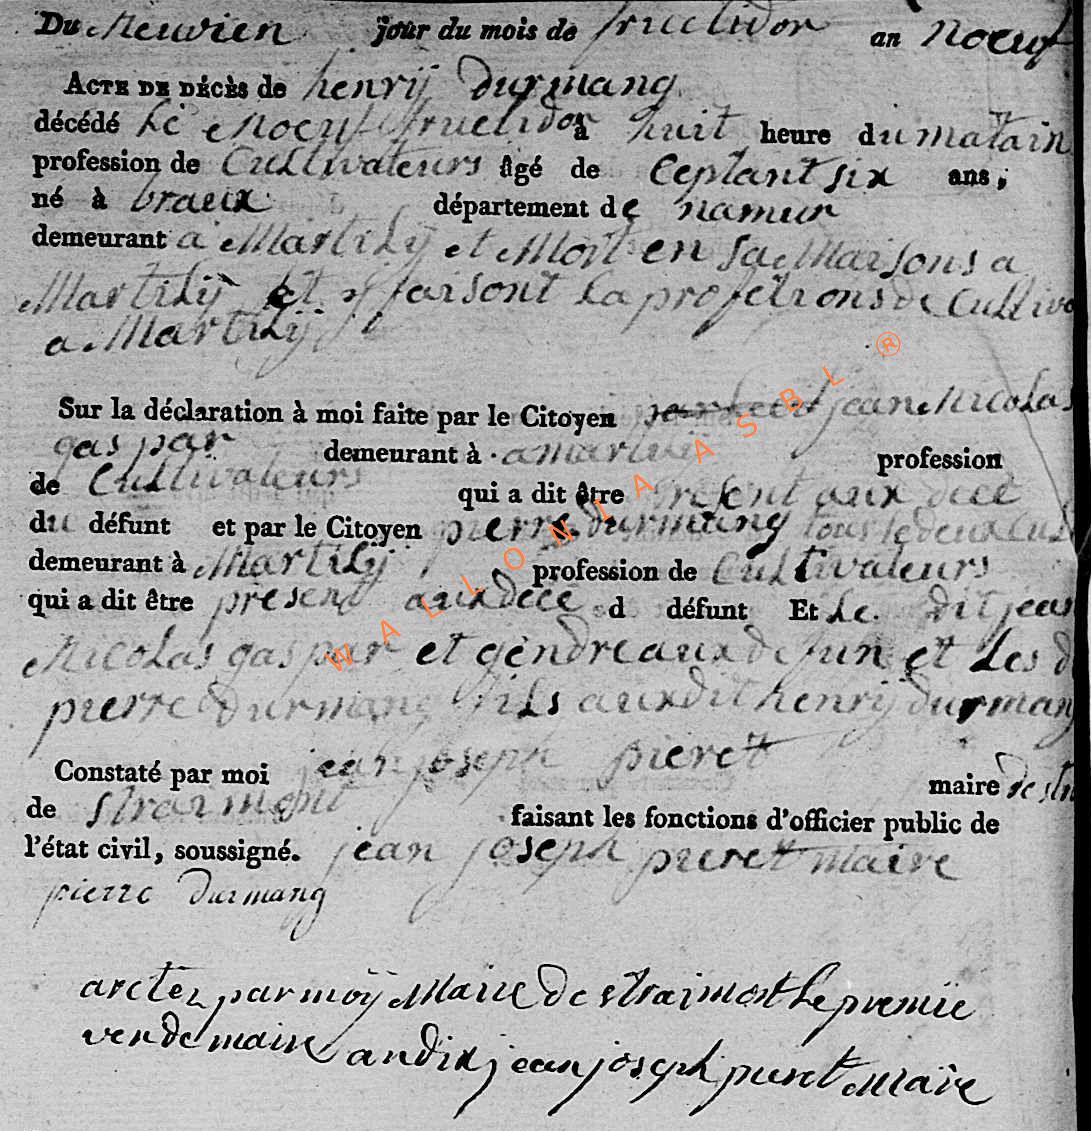 Du Neuvien jour du mois de fructidor an Noeuf
ACTE DE DÉCÈS de henrÿ durmang
décédé Le Noeuf fructidor à huit heure du matain
profession de Cultivateurs âgé de Ceptant six ans,
né à braux département de namur
demeurant a Martilÿ et Mort en sa Maisons a
Martilÿ et faisont la profetions de Cultiv
a Martilÿ
Sur la déclaration à moi faite par le Citoyen jean Nicolas
gaspar demeurant à a martilÿ profession
de Cultivateurs qui a dit être present aux dece
du défunt et par le Citoyen pierre durmang tous le deux Cul
demeurant à Martilÿ profession de Cultivateurs
qui a dit être present aux dece d défunt Et Le dit jean
Nicolas gaspar et gendre aux defun et Les d
pierre durmang fils aux dit henrÿ durmang
Constaté par moi jean joseph pieret maire de
de straimont faisant les fonctions d'officier public de
l'état civil, soussigné. jean joseph pieret maire
pierre durmang
arctez par moÿ Maire de straimont Le premie
vendemaire an dix jean joseph pieret Maire
WALLONIA ASBL ®